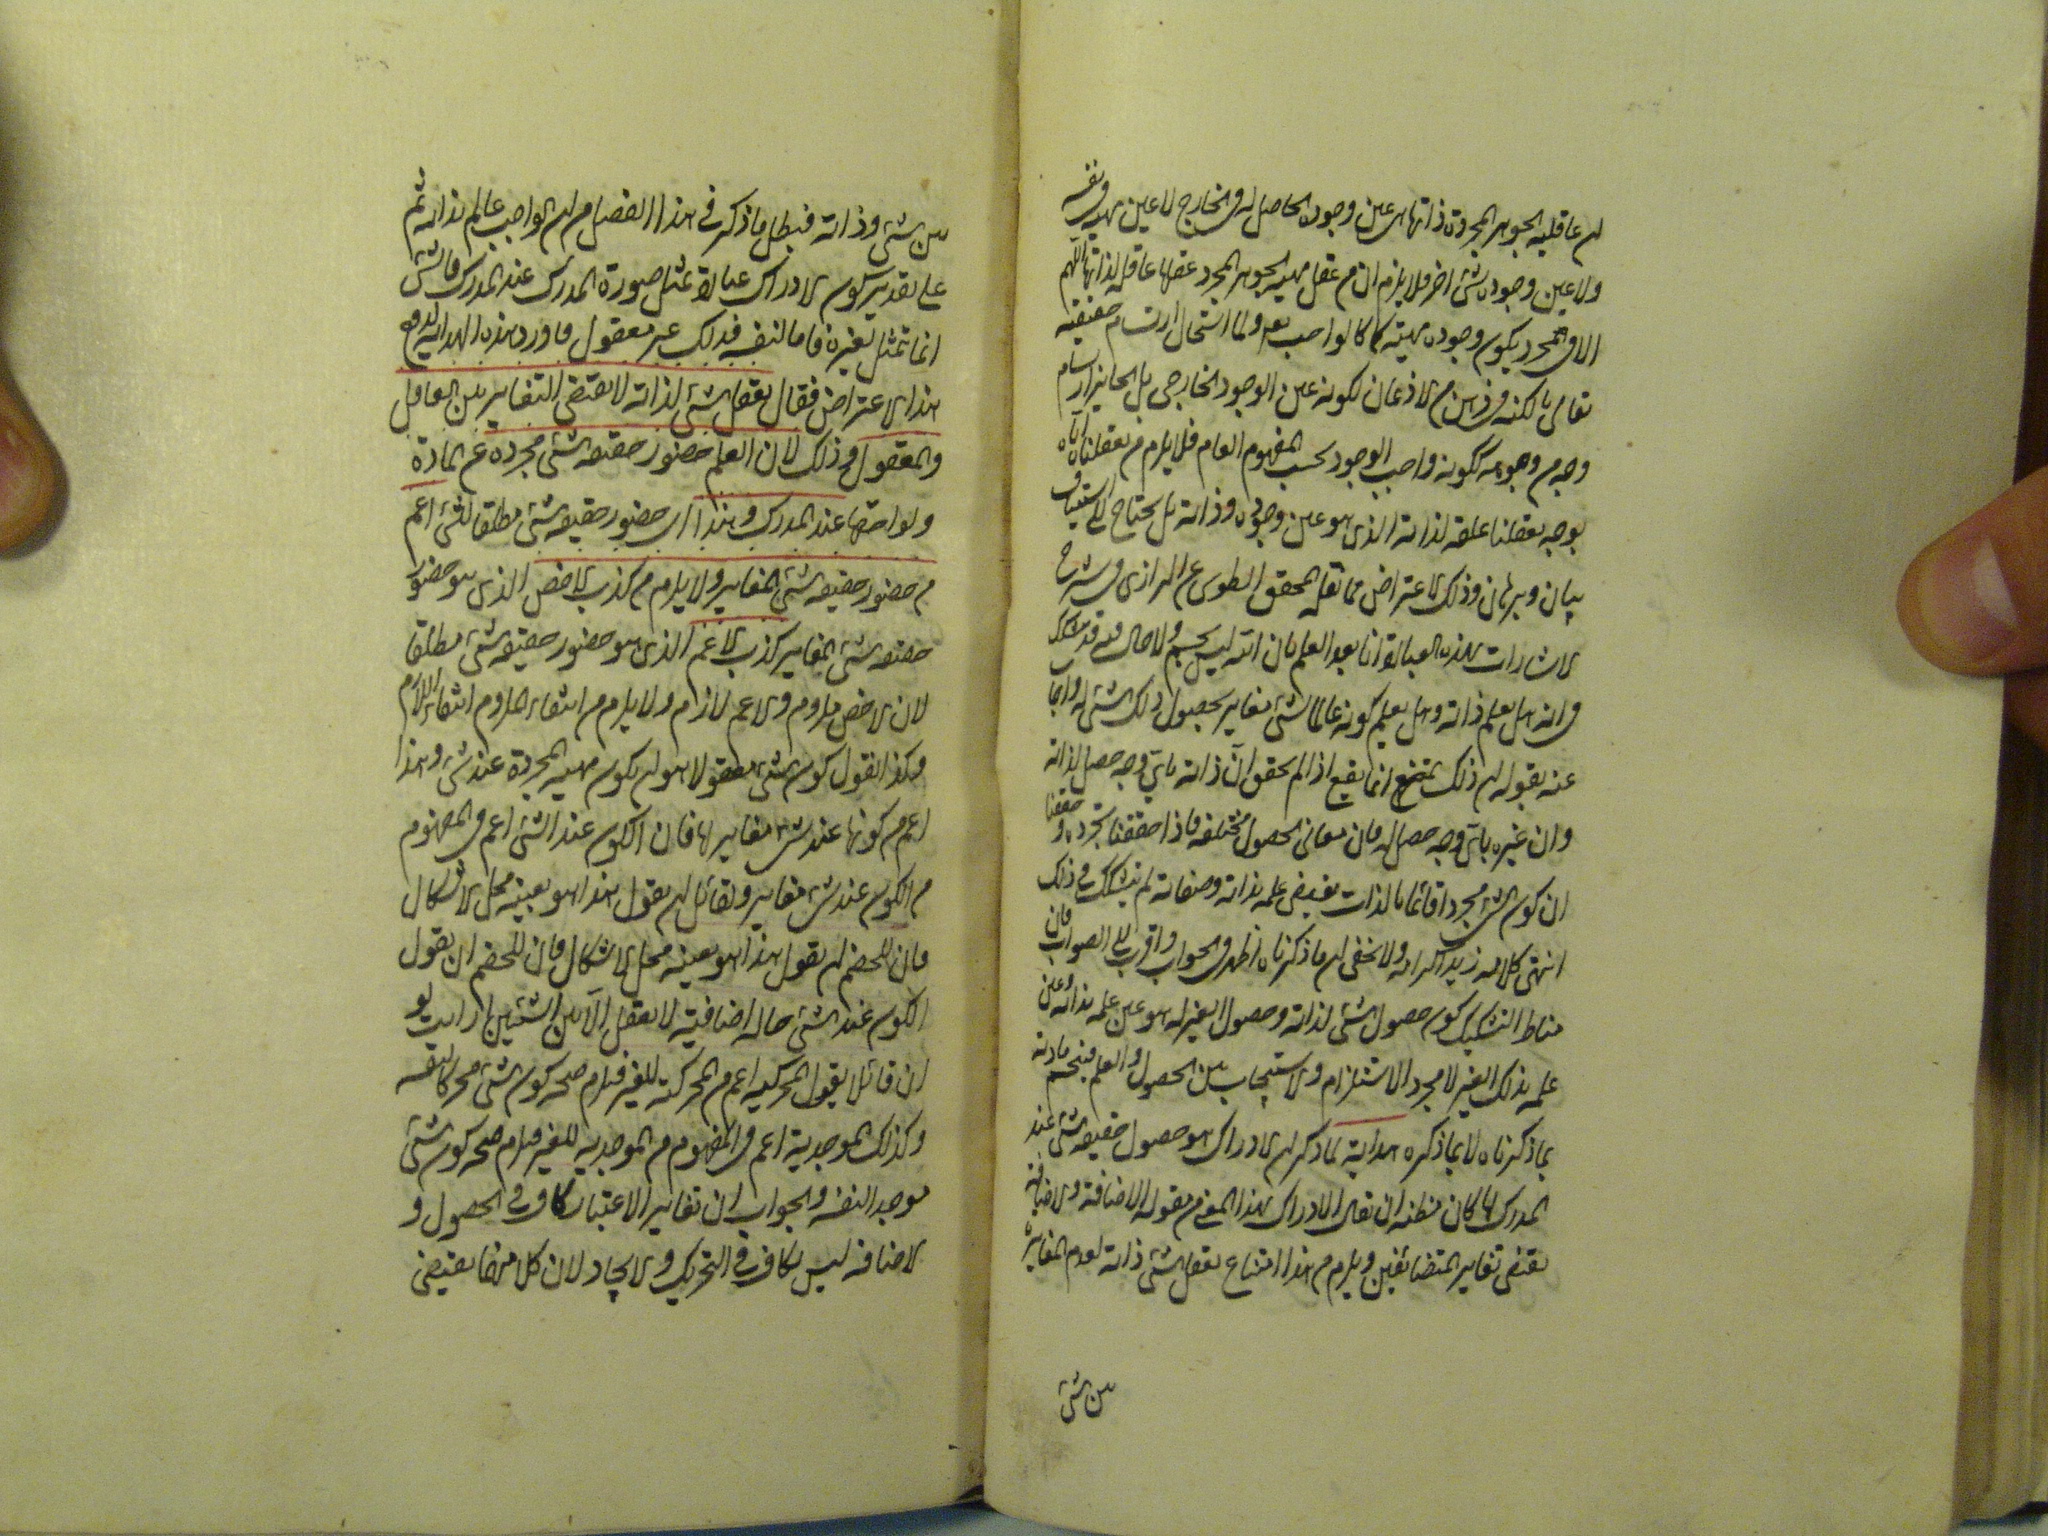 ان عاقلية الجوهر المجردة ذاتها هى عين وجوده الحاصل له فى الخارج لا عين مهيته ونفسه
ولا عين وجوده لشئ اخر فلا يلزم ان من عقل مهية الجوهر المجرد عقلها عاقلة لذاتها اللهم
الا فى المجرد يكون وجوده مهيته كالواجب تعم ولما استحال ارتسام حقيقته
تعالى بالكنه فى ذهن من الاذهان لكونه عين الوجود الخارجى بل الجايز ارتسام
وجه من وجوهه ككونه واجب الوجود بحسب المفهوم العام فلا يلزم من تعقلنا اياه
بوجه تعقلنا علمه لذاته الذى هو عين وجوده وذاته بل يحتاج الى استيناف
بيان وبرهان وذلك الاعتراض مما نقله المحقق الطوسى عن الرازى فى شرح
الاشارات بهذه العبارة انا بعد العلم بان الله ليس بجسم ولا حال فيه قد نشكك
فى انه هل يعلم ذاته وهل يعلم كونه عالما لشئ مغاير بحصول ذلك الشئ له واجاب
عنه بقوله ان ذلك انما يقع اذا لم يحقق ان ذاته باى وجه حصل لذاته
وان غيره باى وجه حصل له فان معانى الحصول مختلفة فاذا حققنا تجرده وحققنا
ان كون الشئ مجردا قائما بالذات يقتضى علمه بذاته وصفاته لم نشكك فى ذلك
انتهى كلامه زيد اكرامه ولا يخفى ان ما ذكرناه اظهر فى الجواب واقرب الى الصواب فان
مناط التشكيك كون حصول الشئ لذاته وحصول الغير له هو عين علمه بذاته وعين
علمه بذلك الغير لا مجرد الاستلزام والاستيجاب بين الحصول والعلم فينحسم مادته
بما ذكرناه لا بما ذكره هداية لما ذكر ان الادراك هو حصول حقيقة الشئ عند
المدرك كان مظنة ان يقال الادراك بهذا المعنى من مقولة الاضافة والاضافة
يقتضى تغاير المتضائفين ويلزم من هذا امتناع تعقل الشئ ذاته لعدم المغايرة
بين الشئ
بين الشئ وذاته فبطل ما ذكر فى هذا الفصل من ان الواجب عالم بذاته ثم
على تقدير كون الادراك عبارة عن تمثل صورة المدرك عند المدرك فالشئ
انما تمثل لغيره فاما لنفسه فذلك غير معقول فاورد هذه الهداية لدفع
هذا الاعتراض فقال تعقل الشئ لذاته لا يقتضى التغاير بين العاقل
والمعقول وذلك لان العلم حضور حقيقة الشئ مجرده عن المادة
ولواحقها عند المدرك وهذا اى حضور حقيقة الشئ مطلقا للشئ اعم
من حضور حقيقة الشئ المغاير ولا يلزم من كذب الاخص الذى هو حضور
حقيقة الشئ المغاير كذب الاعم الذى هو حضور حقيقة الشئ مطلقا
لان الاخص ملزوم والاعم لازم ولا يلزم من انتفاء الملزوم انتفاء اللازم
وهكذا نقول كون الشئ معقولا هو ان يكون مهية المجردة عند شئ وهذا
اعم من كونها عند شئ مغاير لها فان الكون عند الشئ اعم فى المفهوم
من الكون عند شئ مغاير ولقائل ان يقول هذا هو بعينه محل الاشكال
فان للخصم ان يقول هذا هو بعينه محل الاشكال فان للخصم ان يقول
الكون عند الشئ حاله اضافية لا يعقل الا بين الشيئين ارايت لو
ان قائلا يقول المحركية اعم من المحركة للغير فيلزم صحة كون الشئ محركا لنفسه
وكذلك الموجدية اعم فى المفهوم من الموجدية للغير فيلزم صحة كون الشئ
موجد النفسه والجواب ان تغاير الاعتبار كاف فى الحصول و
الاضافة ليس بكاف فى التحريك والايجاد لان كلا منها يقتضى